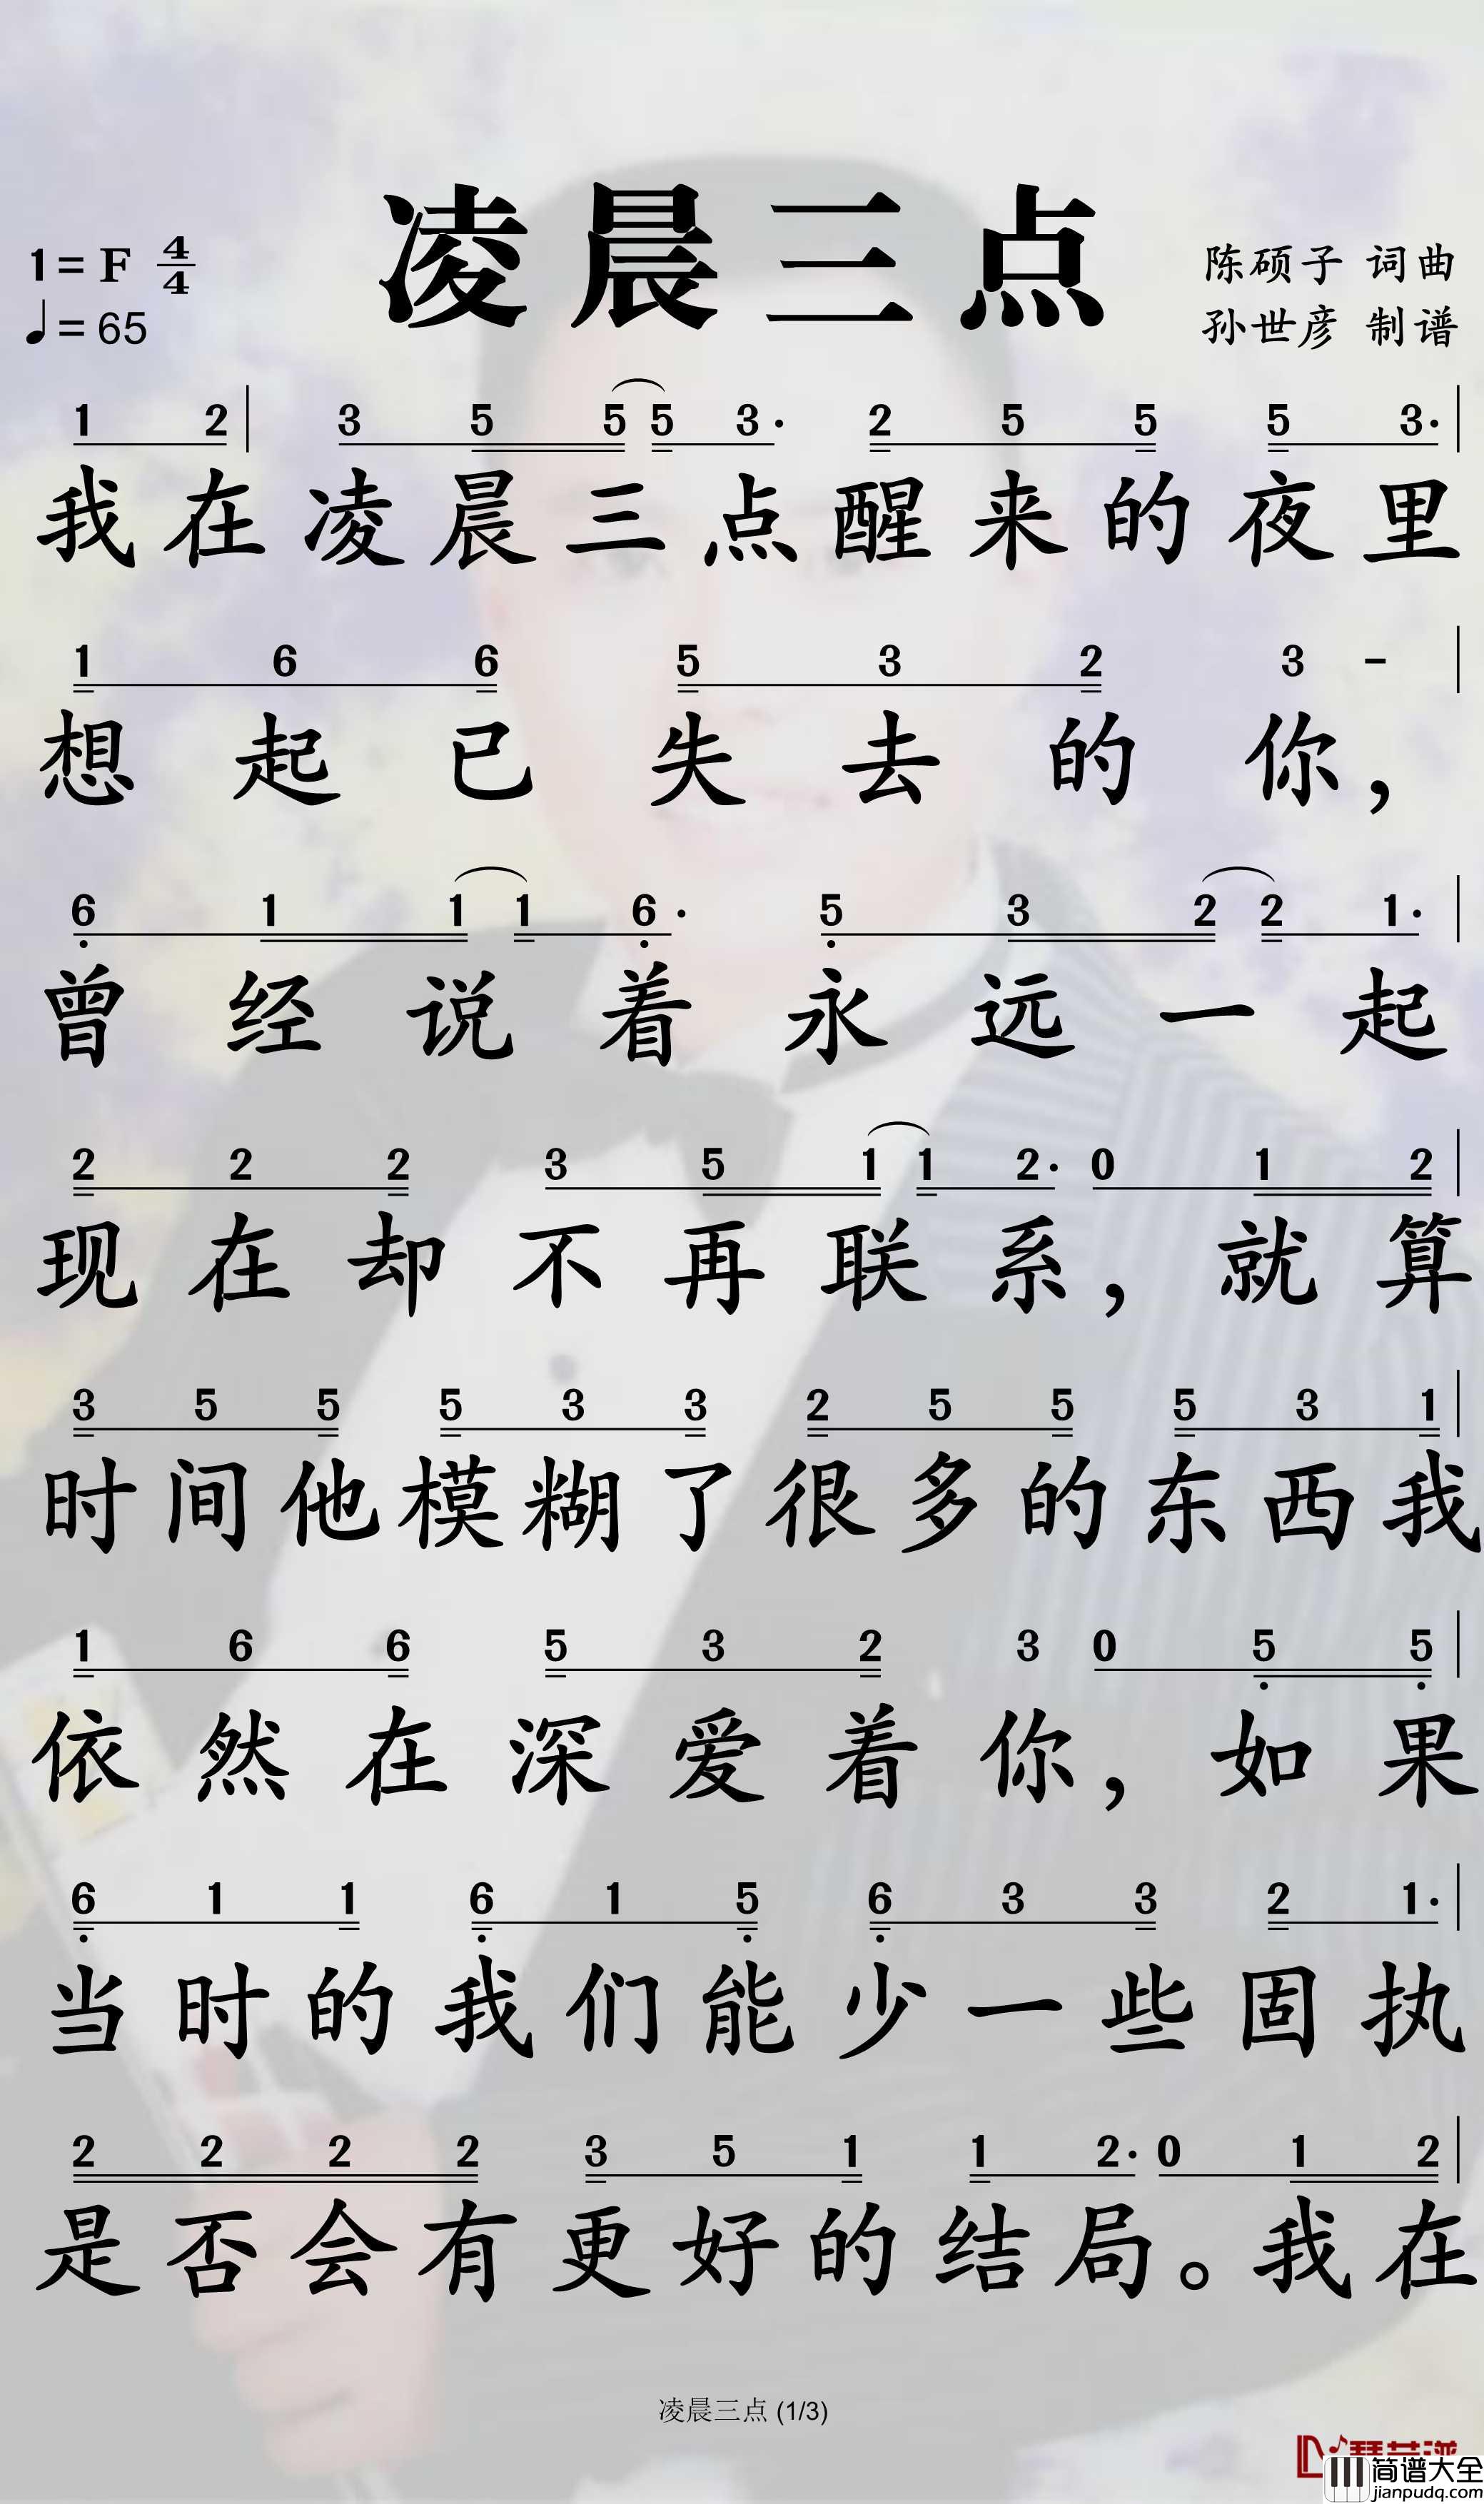 凌晨三点
1=F 4/4
♩=65
陈硕子 词曲
孙世彦 制谱
1 2 | 3 5 5 5 3· 2 5 5 5 3· |
我在凌晨三点醒来的夜里
1 6 6 5 3 2 3 - |
想起已失去的你，
6 1 1 1 6· 5 3 2 2 1· |
曾经说着永远一起
2 2 2 3 5 1 1 2· 0 1 2 |
现在却不再联系，就算
3 5 5 5 3 3 2 5 5 5 3 1 |
时间他模糊了很多的东西我
1 6 6 5 3 2 3 0 5 5 |
依然在深爱着你，如果
6 1 1 6 1 5 6 3 3 2 1· |
当时的我们能少一些固执
2 2 2 2 3 5 1 1 2· 0 1 2 |
是否会有更好的结局。我在
凌晨三点 (1/3)
简谱大全
jianpudq.com